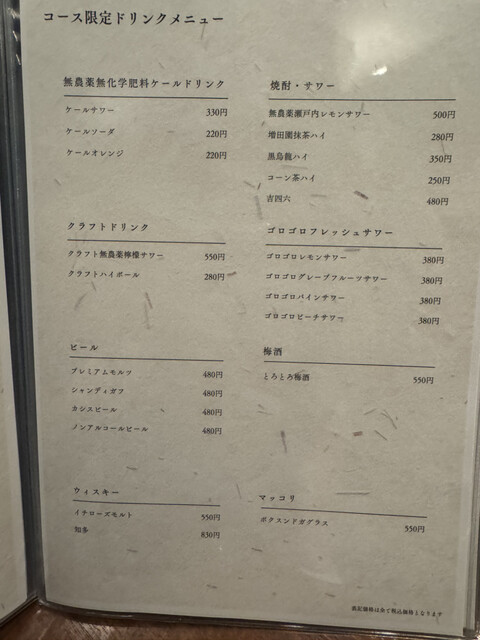 コース限定ドリンクメニュー
無農薬無化学肥料ケールドリンク
ケールサワー 330円
ケールソーダ 220円
ケールオレンジ 220円
クラフトドリンク
クラフト無農薬檸檬サワー 550円
クラフトハイボール 280円
ビール
プレミアムモルツ 480円
シャンディガフ 480円
カシスビール 480円
ノンアルコールビール 480円
ウィスキー
イチローズモルト 550円
知多 830円
焼酎・サワー
無農薬瀬戸内レモンサワー 500円
増田園抹茶ハイ 280円
黒烏龍ハイ 350円
コーン茶ハイ 250円
吉四六 480円
ゴロゴロフレッシュサワー
ゴロゴロレモンサワー 380円
ゴロゴログレープフルーツサワー 380円
ゴロゴロパインサワー 380円
ゴロゴロピーチサワー 380円
梅酒
とろとろ梅酒 550円
マッコリ
ボクスンドガグラス 550円
表記価格は全て税込価格となります